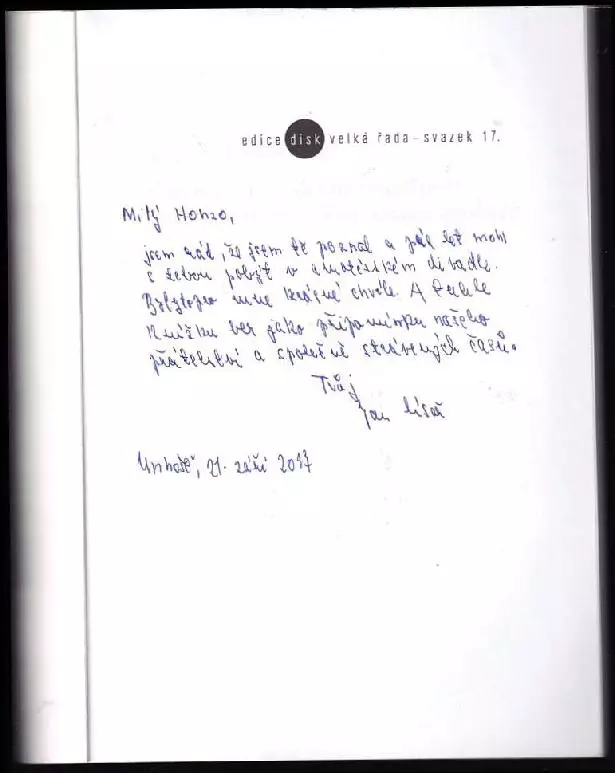 edice disk velká řada – svazek 17.
Milý Honzo,
jsem rád, že jsem tě poznal a pár let mohl
s tebou pobýt v amatérském divadle.
Byly to pro mne krásné chvíle. A tuhle
knížku ber jako připomínku našeho
přátelství a společně strávených časů.
Tvůj
Jan Císař
Unhošť, 21. září 2017